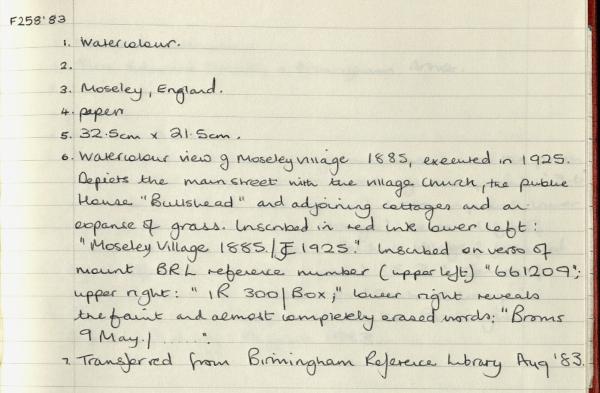 F258'83
1. Watercolour.
2.
3. Moseley, England.
4. paper
5. 32.5cm x 21.5cm.
6. Watercolour view of Moseley village 1885, executed in 1925.
Depicts the main street with the village church, the public
House "Bullshead" and adjoining cottages and an
expanse of grass. Inscribed in red ink lower left:
"Moseley Village 1885./ 1925." Inscribed on verso of
mount BRL reference number (upper left) "661209";
upper right: "IR 300/Box;" lower right reveals
the faint and almost completely erased words; "Broms
9 May./ ......".
7. Transferred from Birmingham Reference Library Aug '83.